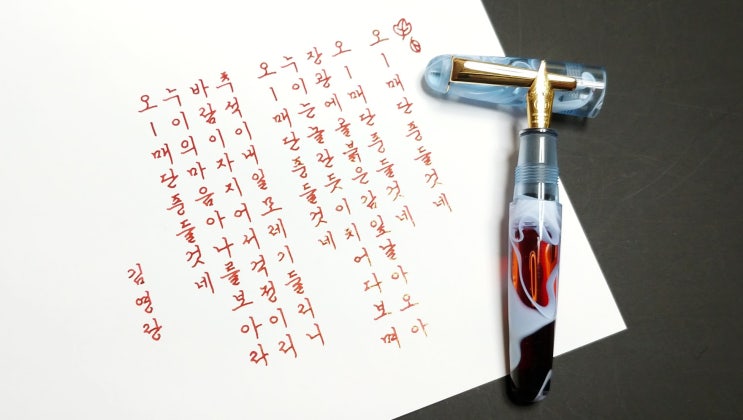 오ㅣ매 단풍 들것네
오ㅣ매 단풍 들것네
장광에 골붉은 감잎 날아오아
누이는 놀란듯이 치어다보며
오ㅣ매 단풍 들것네
추석이 내일모레 기들리니
바람이 자지어서 걱정이리
누이의 마음아 나를 보아라
오ㅣ매 단풍 들것네
김영랑